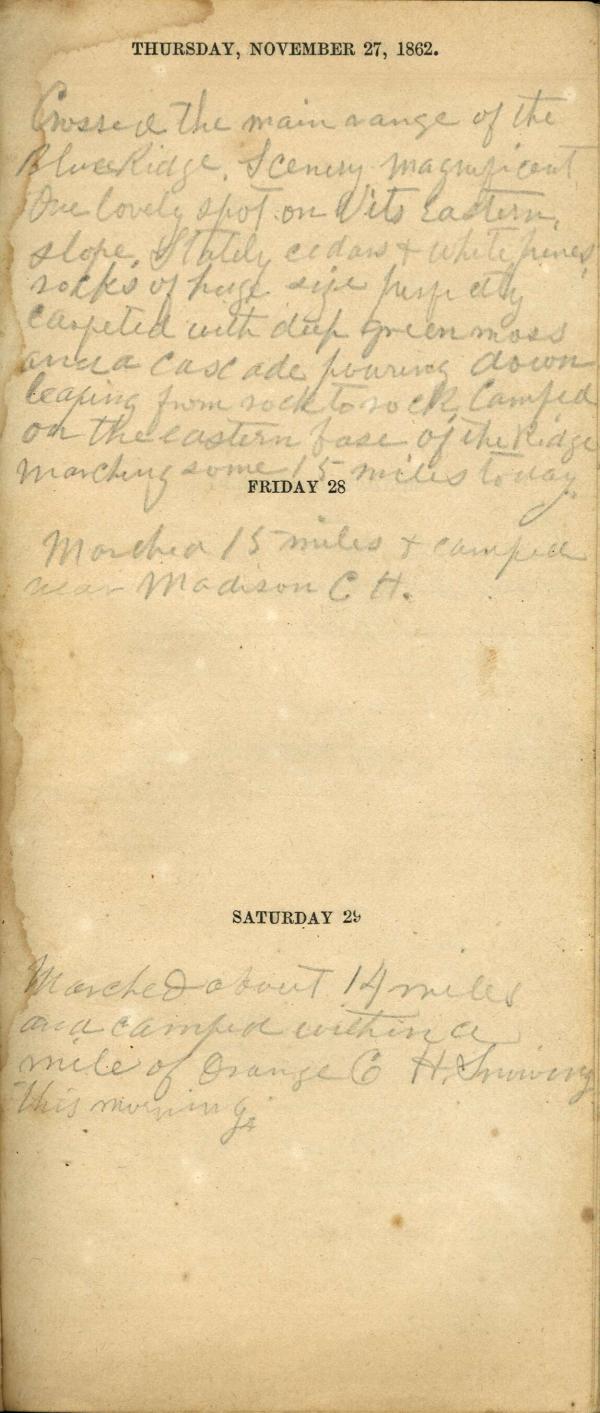 THURSDAY, NOVEMBER 27, 1862.
Crossed the main range of the
Blue Ridge. Scenery magnificent
One lovely spot on its Eastern
slope. Stately cedars & white pines,
rocks of huge size perfectly
carpeted with deep green moss
and a cascade pouring down
leaping from rock to rock. Camped
on the eastern base of the Ridge
marching some 15 miles today.
FRIDAY 28
Marched 15 miles & camped
near Madison C H.
SATURDAY 29
Marched about 14 miles
and camped within a
mile of Orange C H. Snowing
this morning.